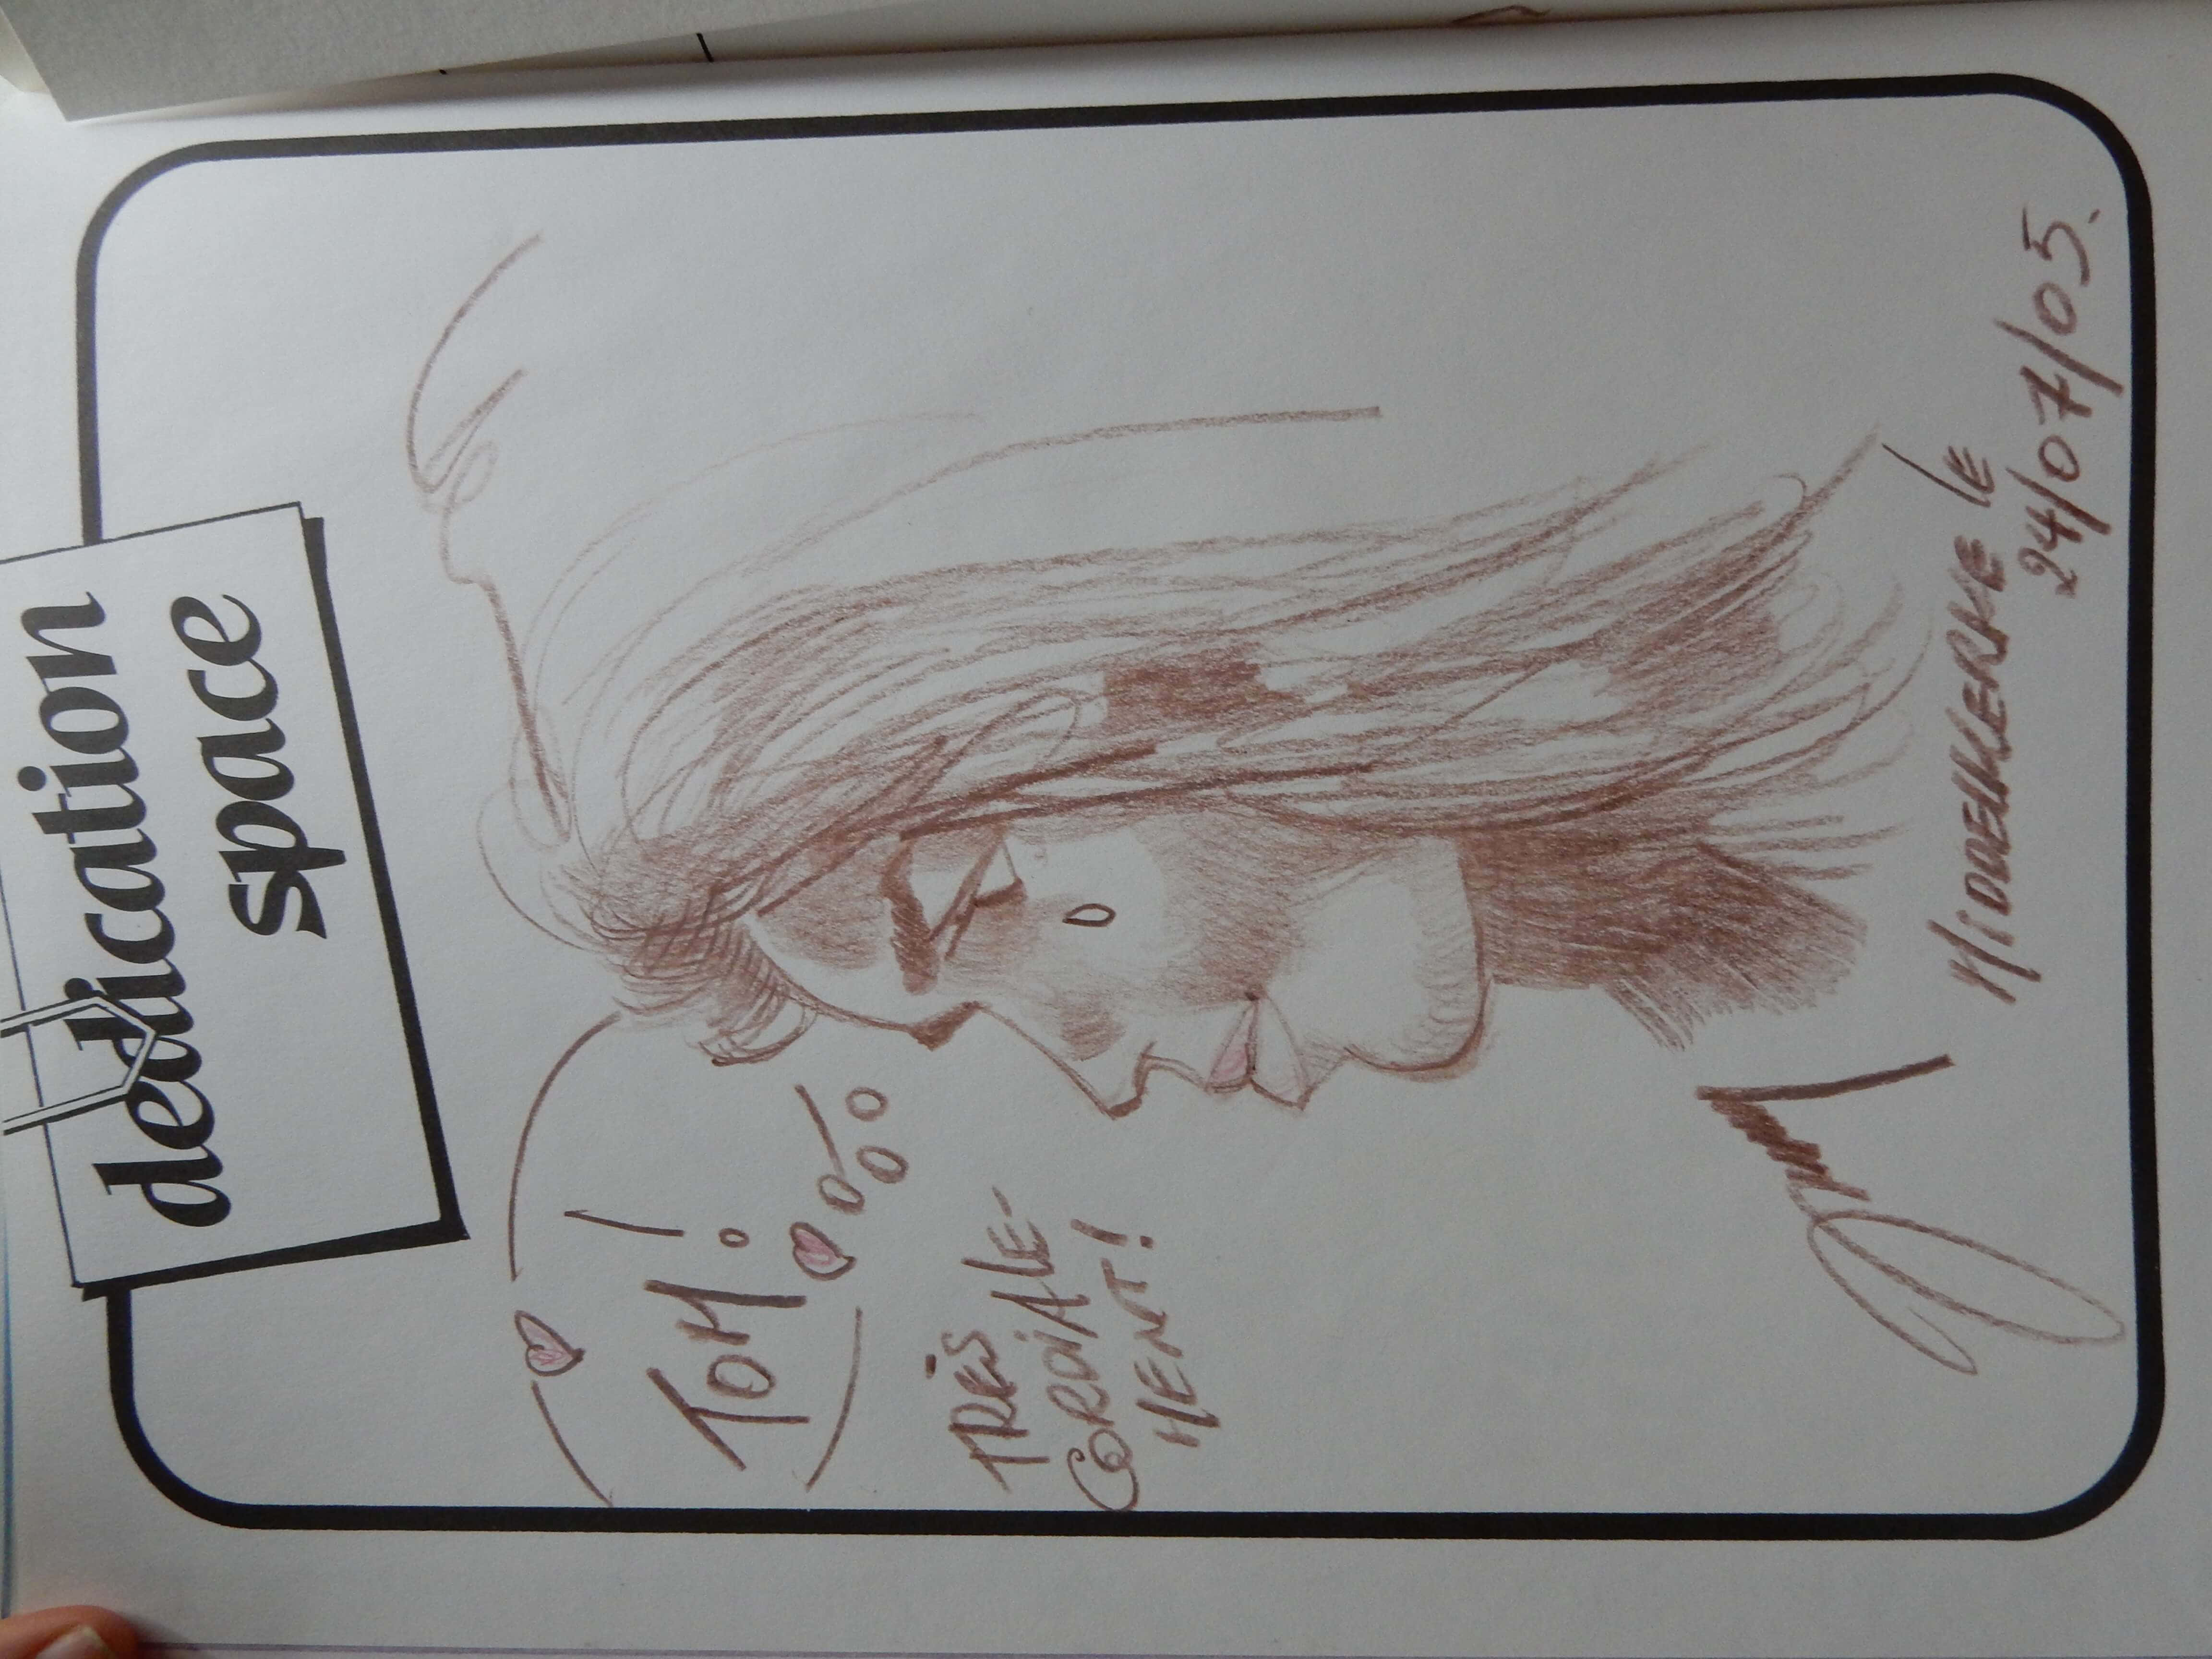 dedication
space
TOM!
TRÈS
CORDIALE-
MENT!
MIDDELKERKE le
24/07/05.